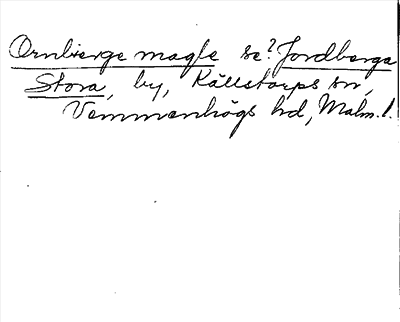 Ornbierge magle se? Jordberga
Stora, by, Källstorps sn,
Vemmenhögs hd, Malm. l.